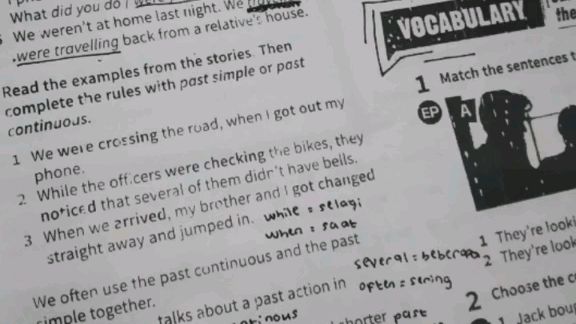 What did you do l
We weren't at home last night. We
were travelling back from a relative's house.
Read the examples from the stories. Then
complete the rules with past simple or past
continuous.
1 We were crossing the road, when I got out my
phone.
2 While the officers were checking the bikes, they
noticed that several of them didn't have bells.
3 When we arrived, my brother and I got changed
straight away and jumped in.
while = selagi
when = saat
We often use the past continuous and the past
simple together.
several = beberapa
talks about a past action in
often = sering
shorter past
VOCABULARY
the
1 Match the sentences t
EP A
1 They're looki
2 They're look
2 Choose the c
Jack bou